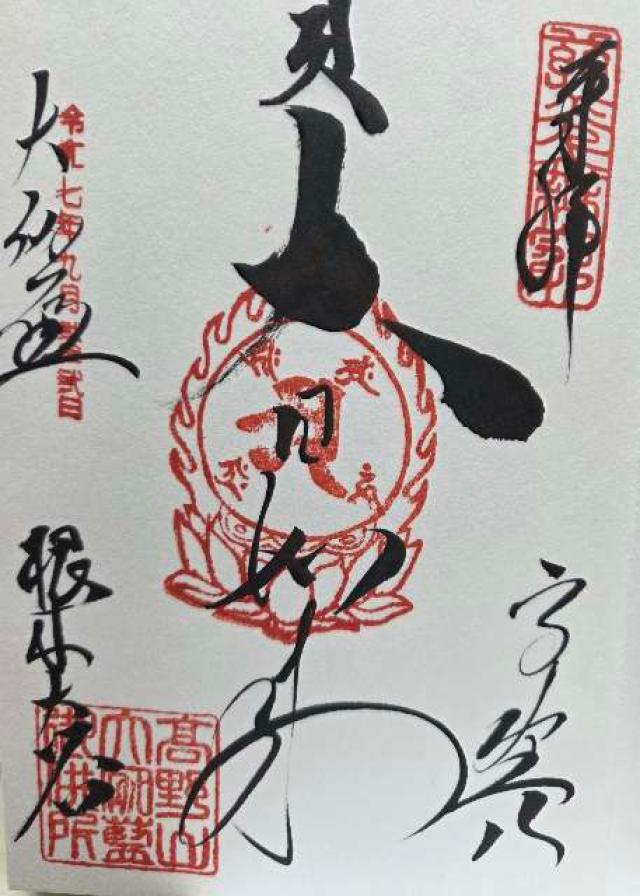 奉拝
高野山
大日如来
大伽藍
令和七年九月弐拾弐日
根本大塔
高野山
大伽藍
御供所